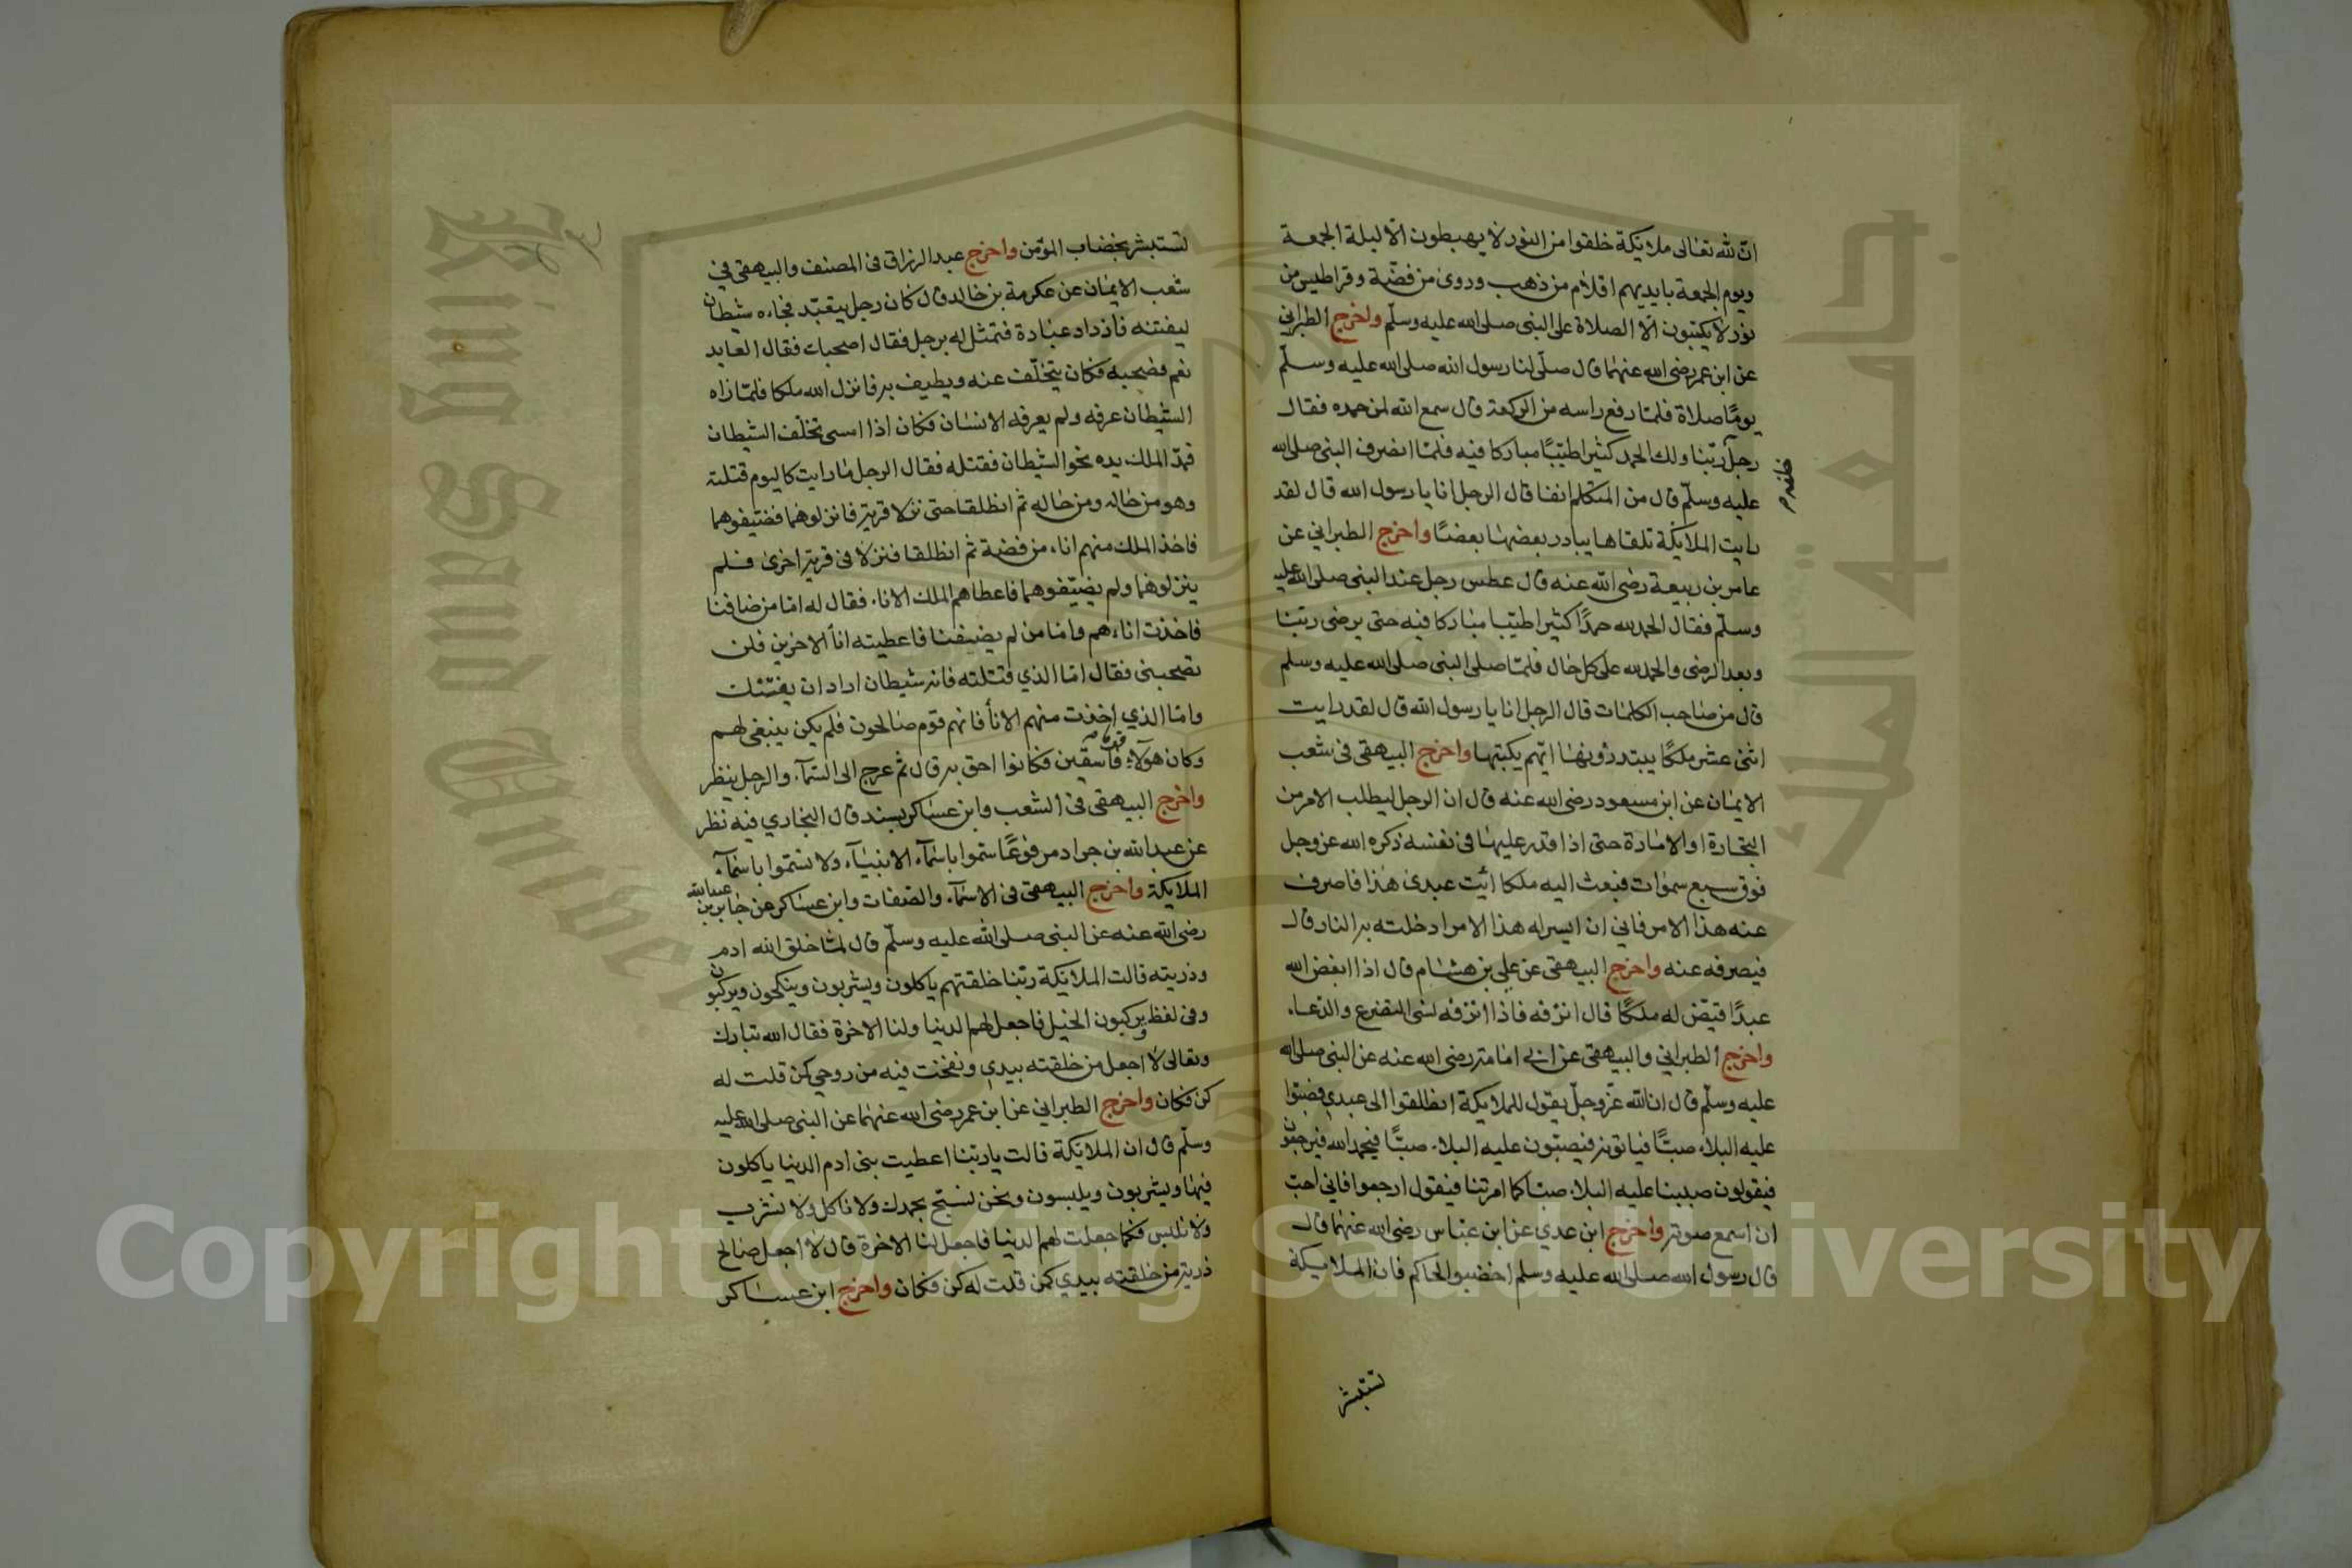 ان لله تعالى ملايكة خلقوا من النور لا يهبطون الا ليلة الجمعة
ويوم الجمعة بايديهم اقلام من ذهب ودوى من فضة وقراطيس من
نور لا يكتبون الا الصلاة على النبى صلى الله عليه وسلم واخرج الطبراني
عن ابن عمر رضى الله عنهما قال صلى لنا رسول الله صلى الله عليه وسلم
يوما صلاة فلما رفع راسه من الركعة قال سمع الله لمن حمده فقال
رجل ربنا ولك الحمد كثيرا طيبا مباركا فيه فلما انصرف النبى صلى الله
خلفه
عليه وسلم قال من المتكلم انفا قال الرجل انا يا رسول الله قال لقد
رايت الملايكة تلقاها يبادر بعضها بعضا واخرج الطبراني عن
عامر بن ربيعة رضى الله عنه قال عطس رجل عند النبى صلى الله عليه
وسلم فقال الحمد لله حمدا كثيرا طيبا مباركا فيه حتى يرضى ربنا
وبعد الرضى والحمد لله على كل حال فلما صلى النبى صلى الله عليه وسلم
قال من صاحب الكلمات قال الرجل انا يا رسول الله قال لقد رايت
اثنى عشر ملكا يبتدرونها ايهم يكبتها واخرج البيهقى فى شعب
الايمان عن ابن مسعود رضى الله عنه قال ان الرجل ليطلب الامر من
التجارة او الامارة حتى اذا قدر عليها فى نفسه ذكره الله عز وجل
فوق سبع سموات فبعث اليه ملكا ائيت عبدى هذا فاصرف
عنه هذا الامر فاني ان ايسر له هذا الامر ادخلته به النار قال
فيصرفه عنه واخرج البيهقى عن علي بن هشام قال اذا ابغض الله
عبدا قيض له ملكا قال انزفه فاذا انزفه لنسى التضرع والدعاء
واخرج الطبراني والبيهقى عن ابى امامة رضى الله عنه عن النبى صلى الله
عليه وسلم قال ان الله عز وجل يقول للملايكة انطلقوا الى عبدي فصبوا
عليه البلاء صبا فياتونه فيصبون عليه البلاء صبا فيحمد الله فيرجعون
فيقولون صببنا عليه البلاء صبا كما امرتنا فيقول ارجعوا فاني احب
ان اسمع صوته واخرج ابن عدي عن ابن عباس رضى الله عنهما قال
قال رسول الله صلى الله عليه وسلم اخضبوا لحاكم فان الملايكة
تستبشر
لتستبشر بخضاب المؤمن واخرج عبد الرزاق فى المصنف والبيهقى في
شعب الايمان عن عكرمة بن خالد قال كان رجل يتعبد فجاءه شيطان
ليفتنه فازداد عبادة فتمثل له برجل فقال اصحبك فقال العابد
نعم فصحبه فكان يتخلف عنه ويطيف به فانزل الله ملكا فلما راه
الشيطان عرفه ولم يعرفه الانسان فكان اذا امسى تخلف الشيطان
فمد الملك يده نحو الشيطان فقتله فقال الرجل ما رايت كاليوم قتلته
وهو من حاله ومن حاله ثم انطلقا حتى نزلا قرية فانزلوهما فضيفوهما
فاخذ الملك منهم اناء من فضة ثم انطلقا فنزلا فى قرية اخرى فلم
ينزلوهما ولم يضيفوهما فاعطاهم الملك الاناء فقال له اما من ضافنا
فاخذت اناءهم واما من لم يضيفنا فاعطيته انأ الاخرين فلن
تصحبنى فقال اما الذي قتلته فانه شيطان اراد ان يفتنك
واما الذي اخذت منهم الانأ فانهم قوم صالحون فلم يكن ينبغى لهم
وكان هولاء قوما فاسقين فكانوا احق به قال ثم عرج الى السماء والرجل ينظر
واخرج البيهقى فى الشعب وابن عساكر بسند قال البخاري فيه نظر
عن عبد الله بن جراد مرفوعا ستموا باسماء الانبياء ولا تستموا باسماء
الملايكة واخرج البيهقى فى الاسماء والصفات وابن عساكر عن جابر بن عبد الله
رضى الله عنه عن النبى صلى الله عليه وسلم قال لما خلق الله ادم
وذريته قالت الملايكة ربنا خلقتهم ياكلون ويشربون وينكحون ويركبون
وفى لفظ ويركبون الخيل فاجعل لهم الدنيا ولنا الاخرة فقال الله تبارك
وتعالى لا اجعل من خلقته بيدي ونفخت فيه من روحي كمن قلت له
كن فكان واخرج الطبراني عن ابن عمر رضى الله عنهما عن النبى صلى الله عليه
وسلم قال ان الملايكة قالت يا ربنا اعطيت بنى ادم الدنيا ياكلون
فيها ويشربون ويلبسون ونحن نسبح بحمدك ولا ناكل ولا نشرب
ولا نلبس فكما جعلت لهم الدنيا فاجعل لنا الاخرة قال لا اجعل صالح
ذرية من خلقته بيدي كمن قلت له كن فكان واخرج ابن عساكر
Copyright © King Saud University